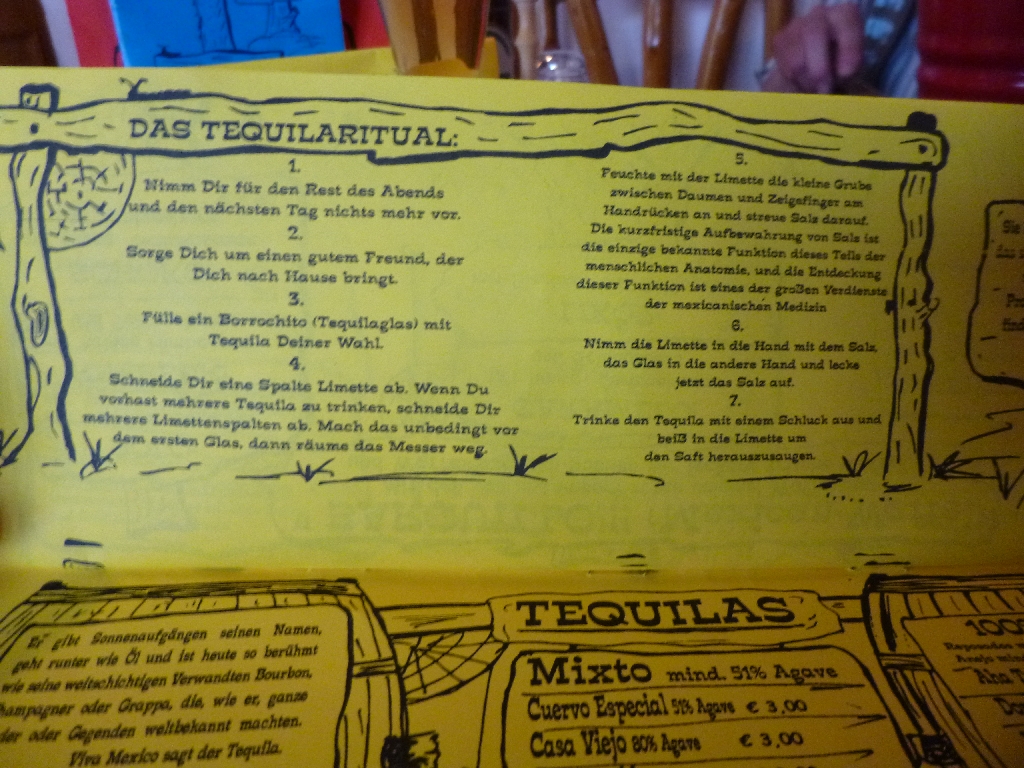 DAS TEQUILARITUAL:
1.
Nimm Dir für den Rest des Abends
und den nächsten Tag nichts mehr vor.
2.
Sorge Dich um einen gutem Freund, der
Dich nach Hause bringt.
3.
Fülle ein Borrochito (Tequilaglas) mit
Tequila Deiner Wahl.
4.
Schneide Dir eine Spalte Limette ab. Wenn Du
vorhast mehrere Tequila zu trinken, schneide Dir
mehrere Limettenspalten ab. Mach das unbedingt vor
dem ersten Glas, dann räume das Messer weg.
5.
Feuchte mit der Limette die kleine Grube
zwischen Daumen und Zeigefinger am
Handrücken an und streue Salz darauf.
Die kurzfristige Aufbewahrung von Salz ist
die einzige bekannte Funktion dieses Teils der
menschlichen Anatomie, und die Entdeckung
dieser Funktion ist eines der großen Verdienste
der mexicanischen Medizin
6.
Nimm die Limette in die Hand mit dem Salz,
das Glas in die andere Hand und lecke
jetzt das Salz auf.
7.
Trinke den Tequila mit einem Schluck aus und
beiß in die Limette um
den Saft herauszusaugen.
Sie
Er gibt Sonnenaufgängen seinen Namen,
geht runter wie Öl und ist heute so berühmt
wie seine weltschichtigen Verwandten Bourbon,
hampagner oder Grappa, die, wie er, ganze
der oder Gegenden weltbekannt machten.
Viva Mexico sagt der Tequila.
TEQUILAS
Mixto mind. 51% Agave
Cuervo Especial 51% Agave € 3,00
Casa Viejo 80% Agave € 3,00
100%